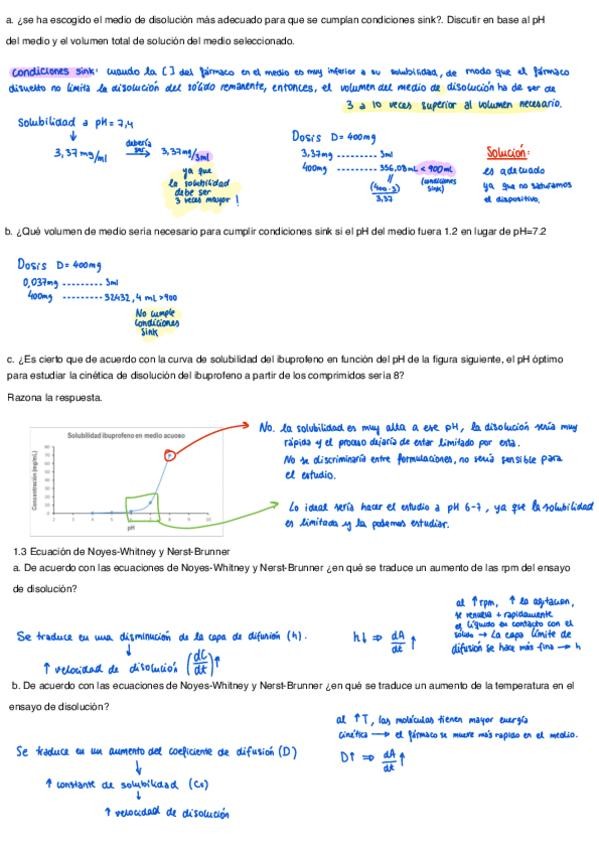 a. ¿se ha escogido el medio de disolución más adecuado para que se cumplan condiciones sink?. Discutir en base al pH
del medio y el volumen total de solución del medio seleccionado.
condiciones sink: cuando la [ ] del fármaco en el medio es muy inferior a su solubilidad, de modo que el fármaco
disuelto no limita la disolución del sólido remanente, entonces, el volumen del medio de disolución ha de ser de
3 a 10 veces superior al volumen necesario.
Solubilidad a pH = 7,4
3,37 mg/ml debería ser 3,37 mg/3ml
ya que
la solubilidad
debe ser
3 veces mayor!
Dosis D= 400mg
3,37mg --------- 3ml
400mg --------- 356,08mL < 900mL
(400·3)
3,37
(condiciones
sink)
Solución:
es adecuado
ya que no saturamos
el dispositivo.
b. ¿Qué volumen de medio sería necesario para cumplir condiciones sink si el pH del medio fuera 1.2 en lugar de pH=7.2
Dosis D= 400mg
0,037mg --------- 3ml
400mg --------- 32432,4 mL >900
No cumple
condiciones
sink
c. ¿Es cierto que de acuerdo con la curva de solubilidad del ibuprofeno en función del pH de la figura siguiente, el pH óptimo
para estudiar la cinética de disolución del ibuprofeno a partir de los comprimidos sería 8?
Razona la respuesta.
Solubilidad ibuprofeno en medio acuoso
Concentración (mg/mL)
80
70
60
50
40
30
20
10
0
2 3 4 5 6 7 8 9 10
pH
No. la solubilidad es muy alta a ese pH, la disolución sería muy
rápida y el proceso dejaría de estar limitado por esta.
No se discriminaría entre formulaciones, no sería sensible para
el estudio.
Lo ideal sería hacer el estudio a pH 6-7, ya que la solubilidad
es limitada y la podemos estudiar.
1.3 Ecuación de Noyes-Whitney y Nerst-Brunner
a. De acuerdo con las ecuaciones de Noyes-Whitney y Nerst-Brunner ¿en qué se traduce un aumento de las rpm del ensayo
de disolución?
Se traduce en una disminución de la capa de difusión (h).
↑ velocidad de disolución (dC/dt)↑
h↓ ⇒ dA/dt ↑
al ↑rpm, ↑ la agitación,
se renueva + rapidamente
el líquido en contacto con el
sólido → La capa límite de
difusión se hace más fina → h
b. De acuerdo con las ecuaciones de Noyes-Whitney y Nerst-Brunner ¿en qué se traduce un aumento de la temperatura en el
ensayo de disolución?
Se traduce en un aumento del coeficiente de difusión (D)
↑ constante de solubilidad (Cs)
↑ velocidad de disolución
al ↑T, las moléculas tienen mayor energía
cinética → el fármaco se mueve más rapido en el medio.
D↑ ⇒ dA/dt ↑